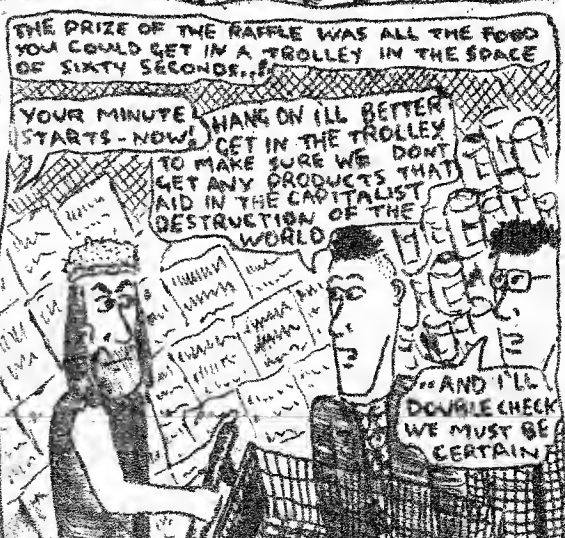 THE PRIZE OF THE RAFFLE WAS ALL THE FOOD
YOU COULD GET IN A TROLLEY IN THE SPACE
OF SIXTY SECONDS...
YOUR MINUTE
STARTS - NOW!
HANG ON ILL BETTER
GET IN THE TROLLEY
TO MAKE SURE WE DONT
GET ANY PRODUCTS THAT
AID IN THE CAPITALIST
DESTRUCTION OF THE
WORLD
..AND I'LL
DOUBLE CHECK
WE MUST BE
CERTAIN